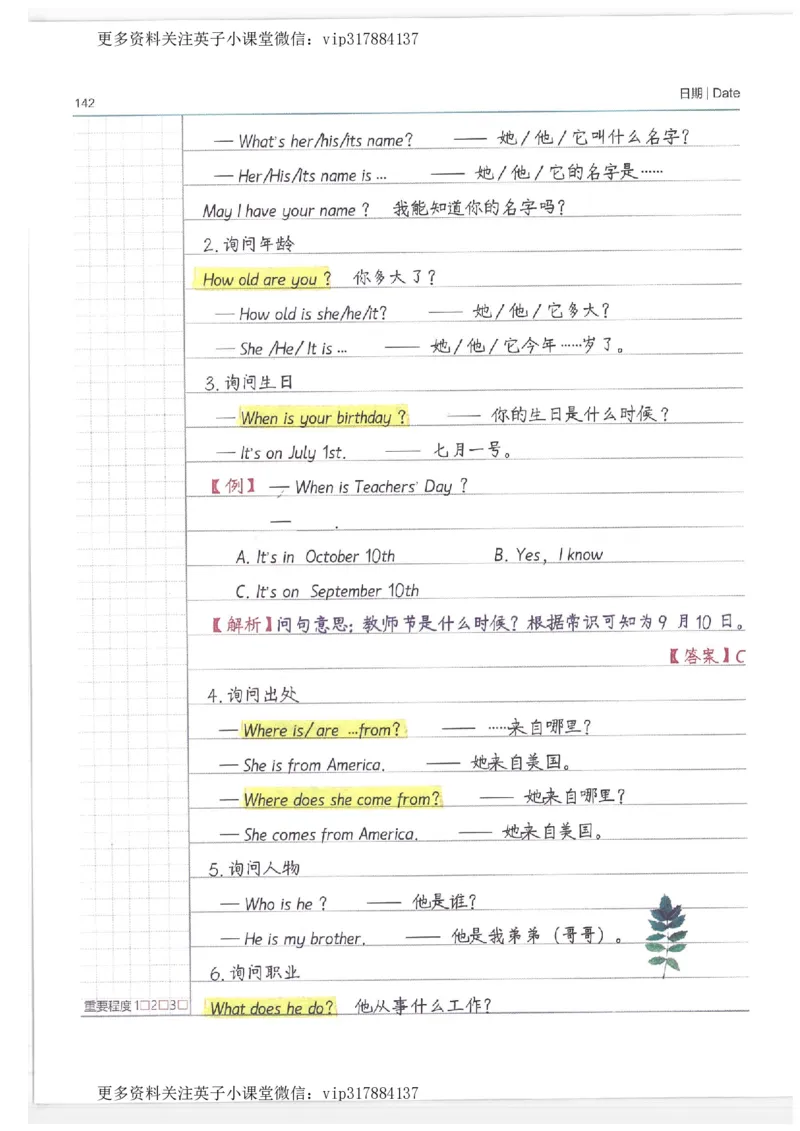 更多资料关注英子小课堂微信：vip317884137
142
日期 | Date
— What's her/his/its name? —— 她/他/它叫什么名字?
— Her/His/Its name is … —— 她/他/它的名字是……
May I have your name ? 我能知道你的名字吗?
2.询问年龄
How old are you ? 你多大了?
— How old is she/he/it? —— 她/他/它多大?
— She /He/ It is … —— 她/他/它今年……岁了。
3.询问生日
— When is your birthday ? —— 你的生日是什么时候?
— It's on July 1st. —— 七月一号。
【例】 — When is Teachers' Day ?
— ____.
A. It's in October 10th B. Yes, I know
C. It's on September 10th
【解析】问句意思: 教师节是什么时候? 根据常识可知为9月10日。
【答案】C
4.询问出处
— Where is/are …from? —— ……来自哪里?
— She is from America. —— 她来自美国。
— Where does she come from? —— 她来自哪里?
— She comes from America. —— 她来自美国。
5.询问人物
— Who is he ? —— 他是谁?
— He is my brother. —— 他是我弟弟（哥哥）。
6.询问职业
重要程度 1□2□3□
What does he do? 他从事什么工作?
更多资料关注英子小课堂微信：vip317884137